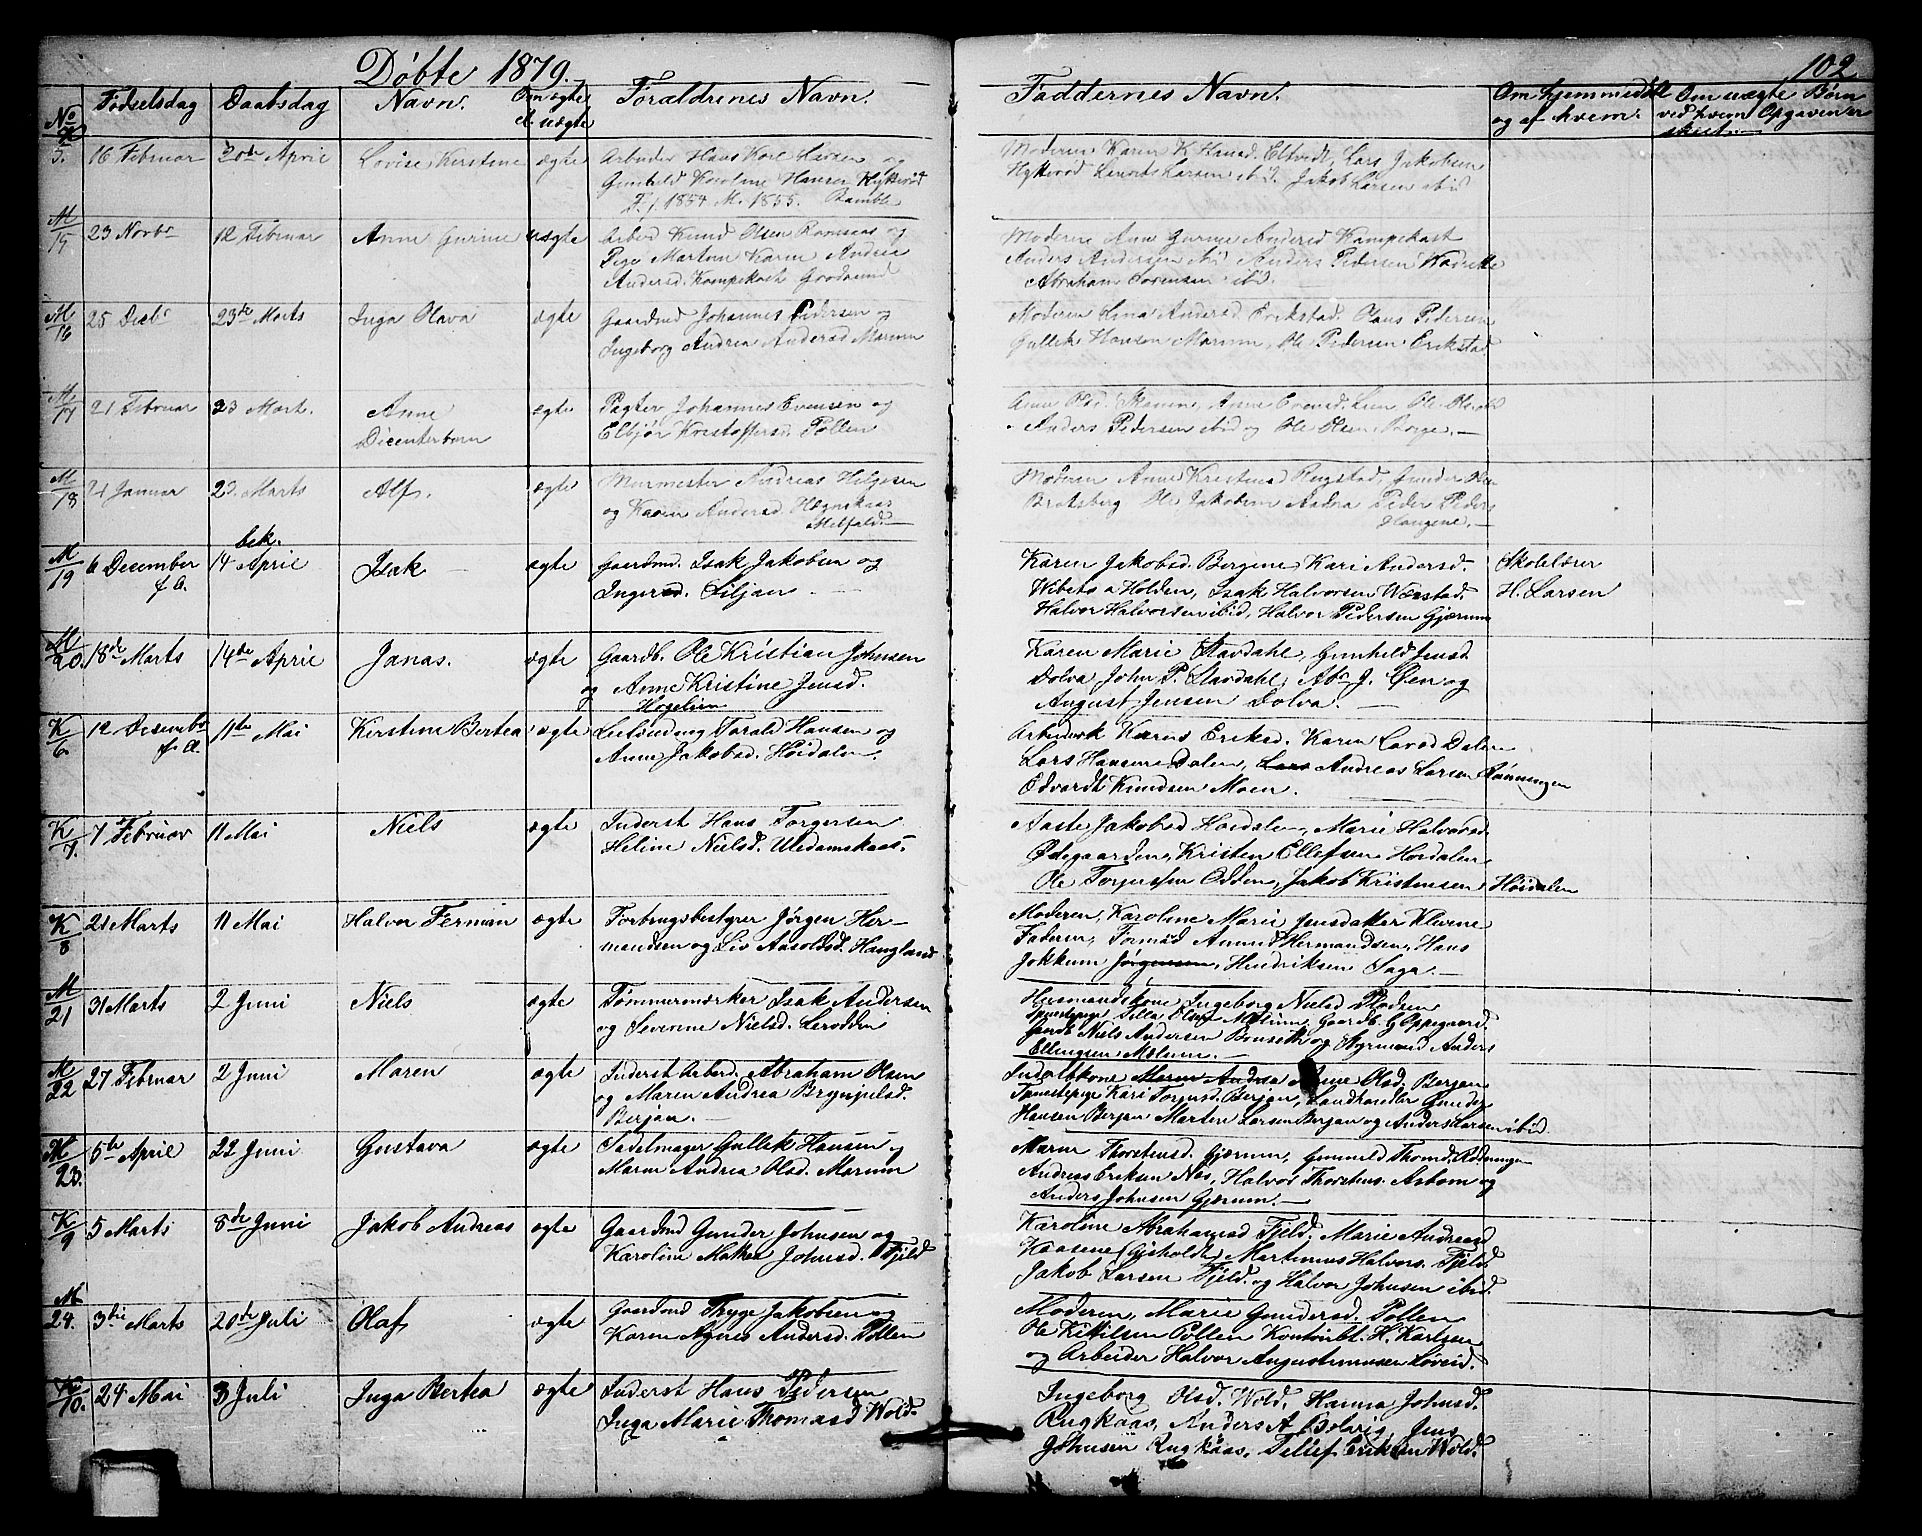 Døbte 1879.
102
No
Fødselsdag
Daabsdag
Navn.
Om ægte el. uægte
Forældrenes Navn.
Faddernes Navn.
Om hjemmedøbt og af hvem.
Om uægte Børn ved hvem Opgaven er skeet.
K 5. 16 Februar
20de April
Lovise Kerstine
ægte
Arbeider Hans Karl Larsen og
Gunhild Karoline Hansen Hykkerød
F. f. 1854 M. 1855. Bamble
Moderen Karen K. Hansd. Eltvedt, Lars Jakobsen
Hykkerød Lauritz Larsen ibid. Jakob Larsen ibid
M 15 23 Novbr
12 Februar
Anne Gurine
uægte
Arbeid Knud Olsen Ramsaas og
Pige Marthn Karen Andrea
Andersd. Kampekast Grodsund
Moderen Ane Gurine Andersd Kampekast
Anders Andersen ibid Anders Pedersen
Abraham Sørensen ibid.
M 16 25 Decbr
23de Marts
Inga Olava
ægte
Gaardmd Johannes Pedersen og
Ingeborg Andrea Andersd Marum
Moderen Lina Andersd Erikstad. Olaus Pedersen
Gullik Hansen Marum, Ole Pedersen Erikstad
M 17 21 Februar
23 Mart.
Anne
Dicenterbarn
ægte
Pagter Johannes Evensen og
Elbjør Kristoffersd. Pollen
Anne Olsd. Anne Evensd. Lien Ole Ols. ibid
Anders Pedersen ibid og Ole Olsen Borge.
M 18 21 Januar
23. Marts
Alf.
ægte
Murmester Andreas Helgesen
og Karen Andersd.
Melfald.
Moderen Anne Kristensd Rugstad, Gunder Olsen
Bratsberg Ole Jakobsen Peder Peders
Haugene.
M 19 6 December f. A.
bek.
14 April
Isak
ægte
Gaardmd. Isak Jakobsen og
Inger Siljan
Karen Jakobsd. Bergene Kari Andersd.
Wibeto a Holden, Isak Halvorsen Wærstad.
Halvor Halvorsen ibid, Halvor Pedersen Gjærum
Skolelærer
H. Larsen
M 20. 18de Marts
14de April
Janas.
ægte
Gaardb. Ole Kristian Johnsen
og Anne Kristine Jensd.
Høgelien
Karen Marie Stavdahl, Gunhild Jensd
Dolva John P. Stavdahl, Abr. J. Øen og
August Jensen Dolva.
K 6. 12 Desembr f. A.
11te Mai
Kerstine Bertea
ægte
Leilænding Torald Hansen og
Anne Jakobsd. Høidalen.
Arbeiderk Karens Eriksd. Karen Larsd Dalen
Lars Hansen Dalen, Lars Andreas Larsen Rønningen
Edvardt Knudsen Moen.
K 7. 7 Februar
11 Mai
Niels
ægte
Inderst Hans Torgersen
Heline Nielsd. Uledamskaas.
Aaste Jakobsd Høidalen, Marie Halvorsd
Ødegaarden, Kristen Ellefsen Høidalen
Ole Torgussen Odden, Jakob Kristensen Høidalen
K 8 21 Marts
11 Mai
Halvor Ferman
ægte
Forbrugsbestyrer Jørgen Her-
mandsen og Liv Aasoldsd. Hangland
Moderen, Karoline Marie Jensdatter Klevene
Faderen, Formsd Anund Hermandsen, Hans
Jokkum Jørgensen, Hendriksen Saga.
M 21 31 Marts
2 Juni
Niels
ægte
Tømmermærker Isak Andersen
og Severine Nielsd. Lerodden
Husmandskone Ingeborg Nielsd
Tjenestepige Tilla Olsd Mælum, Gaardb. G Oppegaard.
Gaardb Niels Andersen Bonseth og Styrmand Anders
Ellingsen Mælum.
M 22 27 Februar
2 Juni
Maren
ægte
Inderst Arbeid. Abraham Olsen
og Maren Andrea Brynjulsd.
Berjan.
Inderstkone Maren Andrea Anne Olsd. Berjan
Tjenestepige Kari Torgusd. Berjan, Landhandler Gunder
Hansen Berjan Marten Larsen Berjan og Anders Larsen ibid
M 23. 5te April
22 Juni
Gustava
ægte
Sadelmager Gullik Hansen og
Maren Andrea Olsd. Marum
Maren Thorstensd. Gjærum, Gunnild Thomd. Rønningen
Andreas Eriksen Nes, Halvor Thorstens. Asbom og
Anders Johnsen Gjærum.
K 9 5 Marts
8de Juni
Jakob Andreas
ægte
Gaardmd Gunder Johnsen og
Karoline Mathea Johnsd. Fjeld
Karoline Abrahamsd Fjeld. Marie Andreasd
Kaasene (Gisholdt) Martinus Halvors. Fjeld.
Jakob Larsen Fjeld. og Halvor Johnsen ibid.
M 24. 3die Marts
20de Juli
Olaf
ægte
Gaardmd Thyge Jakobsen og
Karen Agnes Andersd. Pollen
Moderen, Marie Gundersd. Pollen
Ole Kittilsen Pollen Kontoirbt. H. Karlsen
og Arbeider Halvor Augustinussen Løveid.
K 10. 24 Mai
3 Juli
Inga Bertea
ægte
Inderst Hans Pedersen og
Inga Marie Thomasd Wold.
Ingeborg Olsd. Wold, Hanna Johnsd.
Rugkaas, Anders A. Bolvig, Jens
Johnsen Rugkaas, Tellef Eriksen Wold.